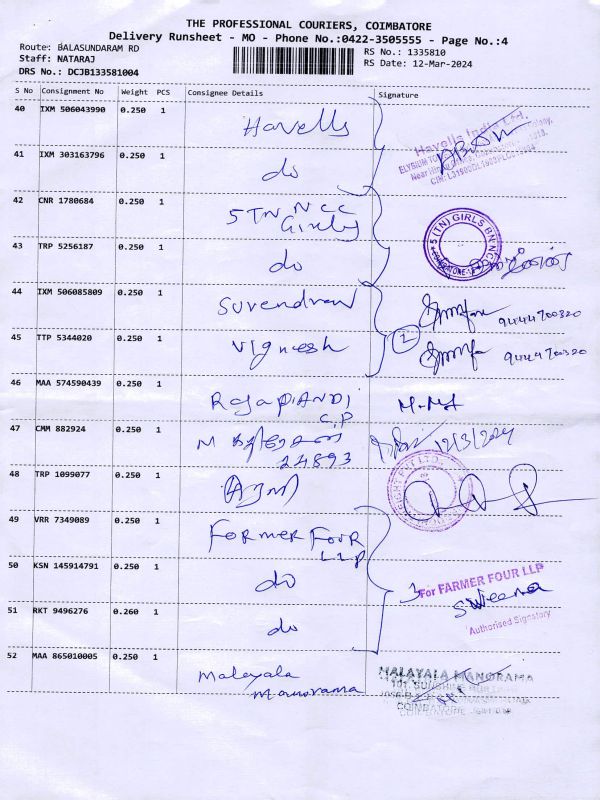 THE PROFESSIONAL COURIERS, COIMBATORE
Delivery Runsheet - MO - Phone No.:0422-3505555 - Page No.:4
Route: BALASUNDARAM RD
Staff: NATARAJ
DRS No.: DCJB133581004
RS No.: 1335810
RS Date: 12-Mar-2024
S No Consignment No Weight PCS Consignee Details Signature
40 IXM 506043990 0.250 1 Havells
Havells India Ltd.
41 IXM 303163796 0.250 1 do
42 CNR 1780684 0.250 1 5 TN NCC
Girls
5 (TN) GIRLS BN NCC
43 TRP 5256187 0.250 1 do
44 IXM 506085809 0.250 1 Surendran 9444700320
45 TTP 5344020 0.250 1 Vignesh 2 9444700320
46 MAA 574590439 0.250 1 RajaPANDI
C.P
47 CMM 882924 0.250 1 M
24893 12/3/2024
48 TRP 1099077 0.250 1
49 VRR 7349089 0.250 1 FORMER FOUR
LLP
50 KSN 145914791 0.250 1 do
3 For FARMER FOUR LLP
Authorised Signatory
51 RKT 9496276 0.260 1 do
52 MAA 865010005 0.250 1 Malayala
Manorama
MALAYALA MANORAMA
COIMBATORE